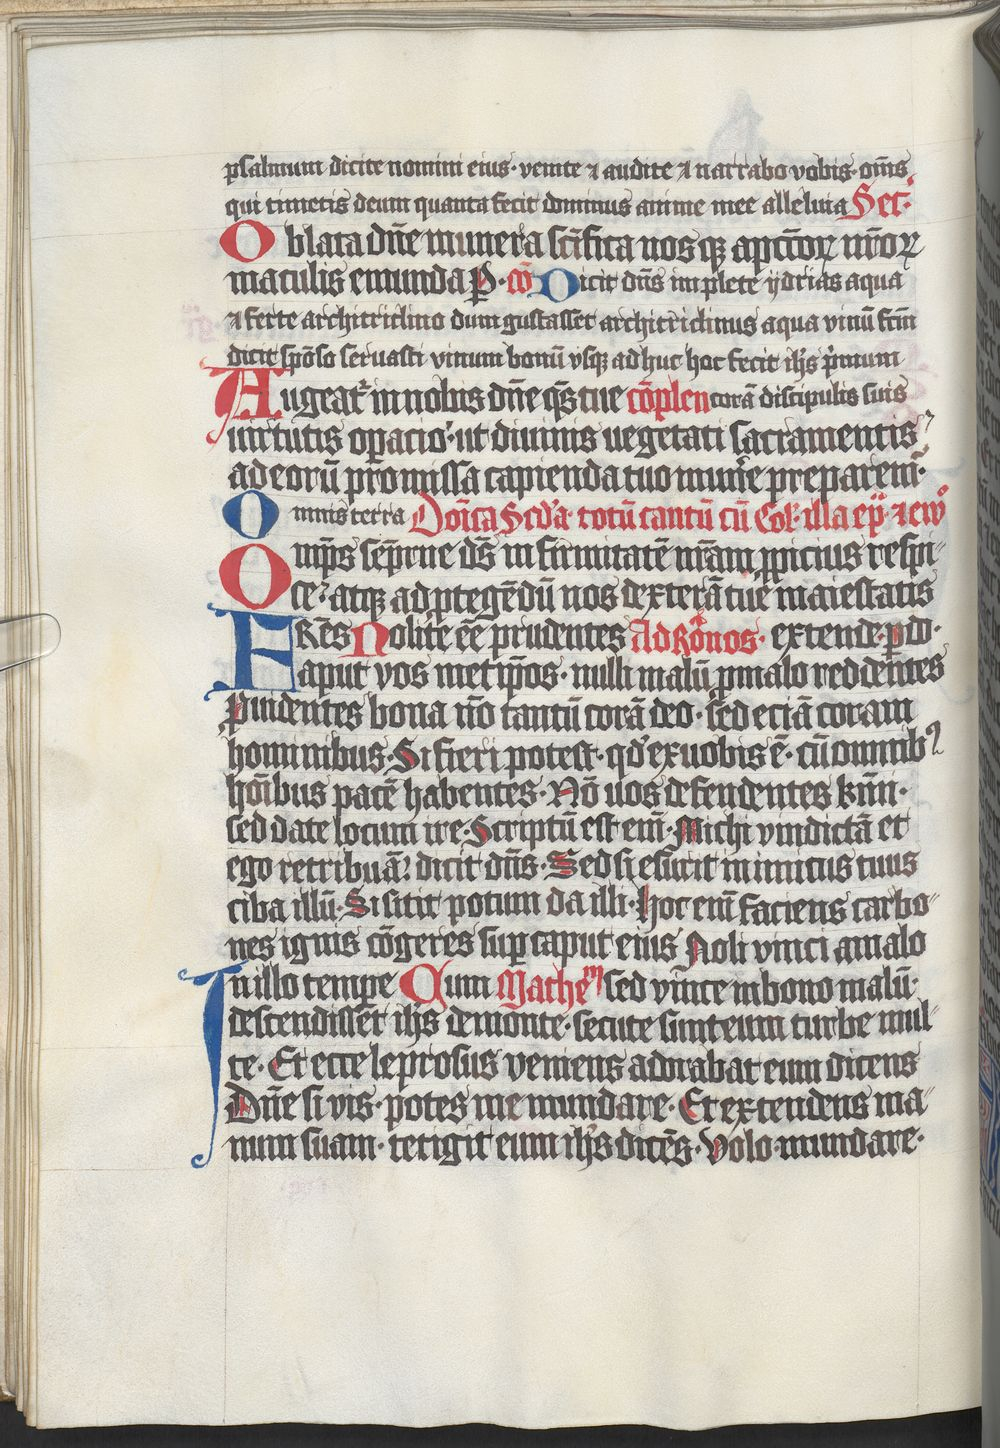 psalmum dicite nomini eius· venite ⁊ audite ⁊ narrabo vobis· om̅s
qui timetis deum quanta fecit dominus anime mee alleluia Secr̅·
Oblata dn̅e munera sc̅ifica nosqꝫ a pctōꝝ nr̅oꝝ
maculis emunda Ꝑ· cō Dicit dn̅s implete ydrias aqua
⁊ ferte architriclino dum gustasset architriclinus aqua vinū fcm̅
dicit spōso seruasti vinum bonū vsqꝫ adhuc hoc fecit ih̅s p̅mum
Augeat᷑ in nobis dn̅e qs̅ tue cōplen corā discipulis suis
uirtutis oꝑacio· ut diuinis uegetati sacramentis
ad eorū promissa capienda tuo mun̅e preparem̅·
Omnis terra Dom̅ca Scd̅a· totū cantū cū Col· illa ep̅· ⁊ ew̅º
Omp̅s semp̅ne ds̅ infirmitatē nr̅am ꝓpicius respi-
ce· atqꝫ ad ꝓtegēdū nos dexterā tue maiestatis
FRēs Nolite ēē prudentes Ad Rōnos· extende· ꝑ d·
aput vos met ip̅os· nulli malū ꝓ malo reddentes
Prudentes bona nō tantū corā deo· sed eciā coram
hominibus· Si fieri potest· qd̓ ex uobis ē· cū omnibꝰ
hoībus pacē habentes· Nō uos defendentes km̅i·
sed date locum ire· Scriptū est em̅· Michi vindictā et
ego retribuā· dicit dn̅s· Sed si esurit inimicus tuus
ciba illū· Si sitit potum da illi· Hoc em̅ faciens carbo-
nes ignis cōgeres suꝑ caput eius Noli vinci a malo
In illo tempe̅ Cum Mathe᷑ᵐ sed vince in bono malū·
descendisset ih̅s de monte· secute sunt eum turbe mul-
te· Et ecce leprosus veniens adorabat eum dicens
Dn̅e si vis· potes me mundare· Et extendens ma-
num suam· tetigit eum ih̅s dicēs· Volo mundare·